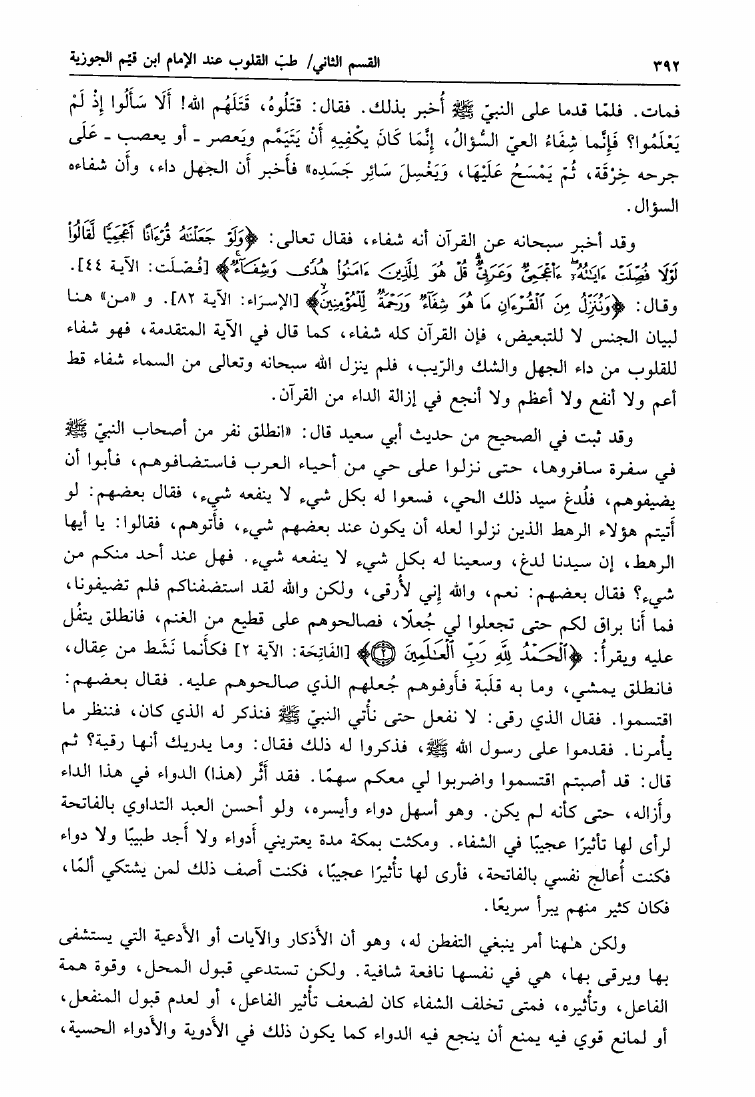 ٣٩٢ القسم الثاني/ طبّ القلوب عند الإمام ابن قيّم الجوزية
فمات. فلمّا قدما على النبيّ ﷺ أُخبر بذلك. فقال: قتَلُوهُ، قَتَلَهُم الله! أَلَا سَأَلُوا إِذْ لَمْ
يَعْلَمُوا؟ فَإِنَّما شِفَاءُ العيّ السُّؤالُ، إِنَّمَا كَانَ يكْفِيهِ أَنْ يَتَيَمَّم ويَعصر ـ أو يعصب ـ عَلَى
جرحه خِرْقَة، ثُمّ يَمْسَحُ عَلَيْهَا، وَيَغْسِلَ سَائِر جَسَدِه» فأخبر أن الجهل داء، وأن شفاءه
السؤال.
وقد أخبر سبحانه عن القرآن أنه شفاء، فقال تعالى: ﴿وَلَوْ جَعَلْنَٰهُ قُرْءَانًا أَعْجَمِيًّا لَّقَالُوا۟
لَوْلَا فُصِّلَتْ ءَايَٰتُهُۥٓ ءَا۬عْجَمِىٌّ وَعَرَبِىٌّ قُلْ هُوَ لِلَّذِينَ ءَامَنُوا۟ هُدًى وَشِفَآءٌ﴾ [فُصّلَت: الآية ٤٤].
وقال: ﴿وَنُنَزِّلُ مِنَ ٱلْقُرْءَانِ مَا هُوَ شِفَآءٌ وَرَحْمَةٌ لِّلْمُؤْمِنِينَ﴾ [الإسرَاء: الآية ٨٢]. و «من» هنا
لبيان الجنس لا للتبعيض، فإن القرآن كله شفاء، كما قال في الآية المتقدمة، فهو شفاء
للقلوب من داء الجهل والشك والرّيب، فلم ينزل الله سبحانه وتعالى من السماء شفاء قط
أعم ولا أنفع ولا أعظم ولا أنجع في إزالة الداء من القرآن.
وقد ثبت في الصحيح من حديث أبي سعيد قال: «انطلق نفر من أصحاب النبيّ ﷺ
في سفرة سافروها، حتى نزلوا على حي من أحياء العرب فاستضافوهم، فأبوا أن
يضيفوهم، فلُدغ سيد ذلك الحي، فسعوا له بكل شيء لا ينفعه شيء، فقال بعضهم: لو
أتيتم هؤلاء الرهط الذين نزلوا لعله أن يكون عند بعضهم شيء، فأتوهم، فقالوا: يا أيها
الرهط، إن سيدنا لدغ، وسعينا له بكل شيء لا ينفعه شيء. فهل عند أحد منكم من
شيء؟ فقال بعضهم: نعم، والله إني لأرقى، ولكن والله لقد استضفناكم فلم تضيفونا،
فما أنا براق لكم حتى تجعلوا لي جُعلًا، فصالحوهم على قطيع من الغنم، فانطلق يتفُل
عليه ويقرأ: ﴿ٱلْحَمْدُ لِلَّهِ رَبِّ ٱلْعَٰلَمِينَ ۝٢﴾ [الفَاتِحَة: الآية ٢] فكأنما نَشَط من عِقال،
فانطلق يمشي، وما به قلَبة فأوفوهم جُعلهم الذي صالحوهم عليه. فقال بعضهم:
اقتسموا. فقال الذي رقى: لا نفعل حتى نأتي النبيّ ﷺ فنذكر له الذي كان، فننظر ما
يأمرنا. فقدموا على رسول الله ﷺ، فذكروا له ذلك فقال: وما يدريك أنها رقية؟ ثم
قال: قد أصبتم اقتسموا واضربوا لي معكم سهمًا. فقد أثَّر (هذا) الدواء في هذا الداء
وأزاله، حتى كأنه لم يكن. وهو أسهل دواء وأيسره، ولو أحسن العبد التداوي بالفاتحة
لرأى لها تأثيرًا عجيبًا في الشفاء. ومكثت بمكة مدة يعتريني أدواء ولا أجد طبيبًا ولا دواء
فكنت أعالج نفسي بالفاتحة، فأرى لها تأثيرًا عجيبًا، فكنت أصف ذلك لمن يشتكي ألمًا،
فكان كثير منهم يبرأ سريعًا.
ولكن هٰهنا أمر ينبغي التفطن له، وهو أن الأذكار والآيات أو الأدعية التي يستشفى
بها ويرقى بها، هي في نفسها نافعة شافية. ولكن تستدعي قبول المحل، وقوة همة
الفاعل، وتأثيره، فمتى تخلف الشفاء كان لضعف تأثير الفاعل، أو لعدم قبول المنفعل،
أو لمانع قوي فيه يمنع أن ينجع فيه الدواء كما يكون ذلك في الأدوية والأدواء الحسية،